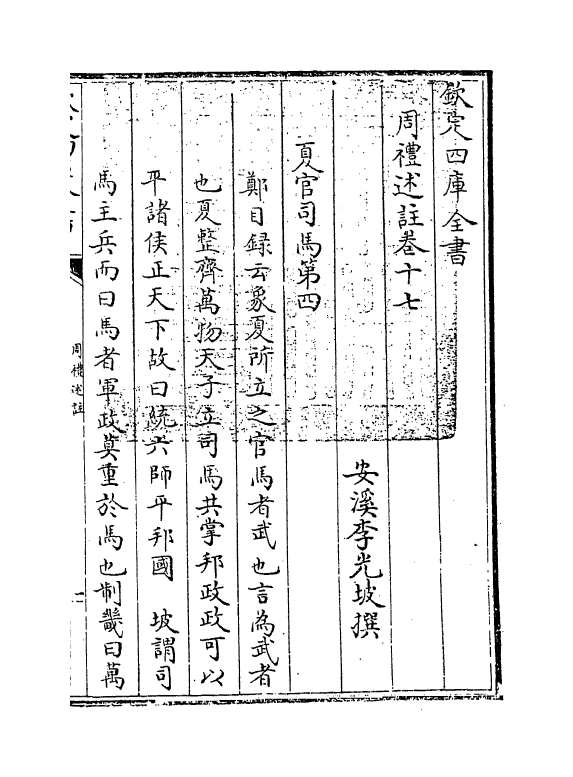 欽定四庫全書
周禮述註卷十七
安溪李光坡撰
夏官司馬第四
鄭目録云象夏所立之官馬者武也言為武者
也夏整齊萬物天子立司馬共掌邦政政可以
平諸侯正天下故曰統六師平邦國　坡謂司
馬主兵而曰馬者軍政莫重於馬也制畿曰萬
周禮述註